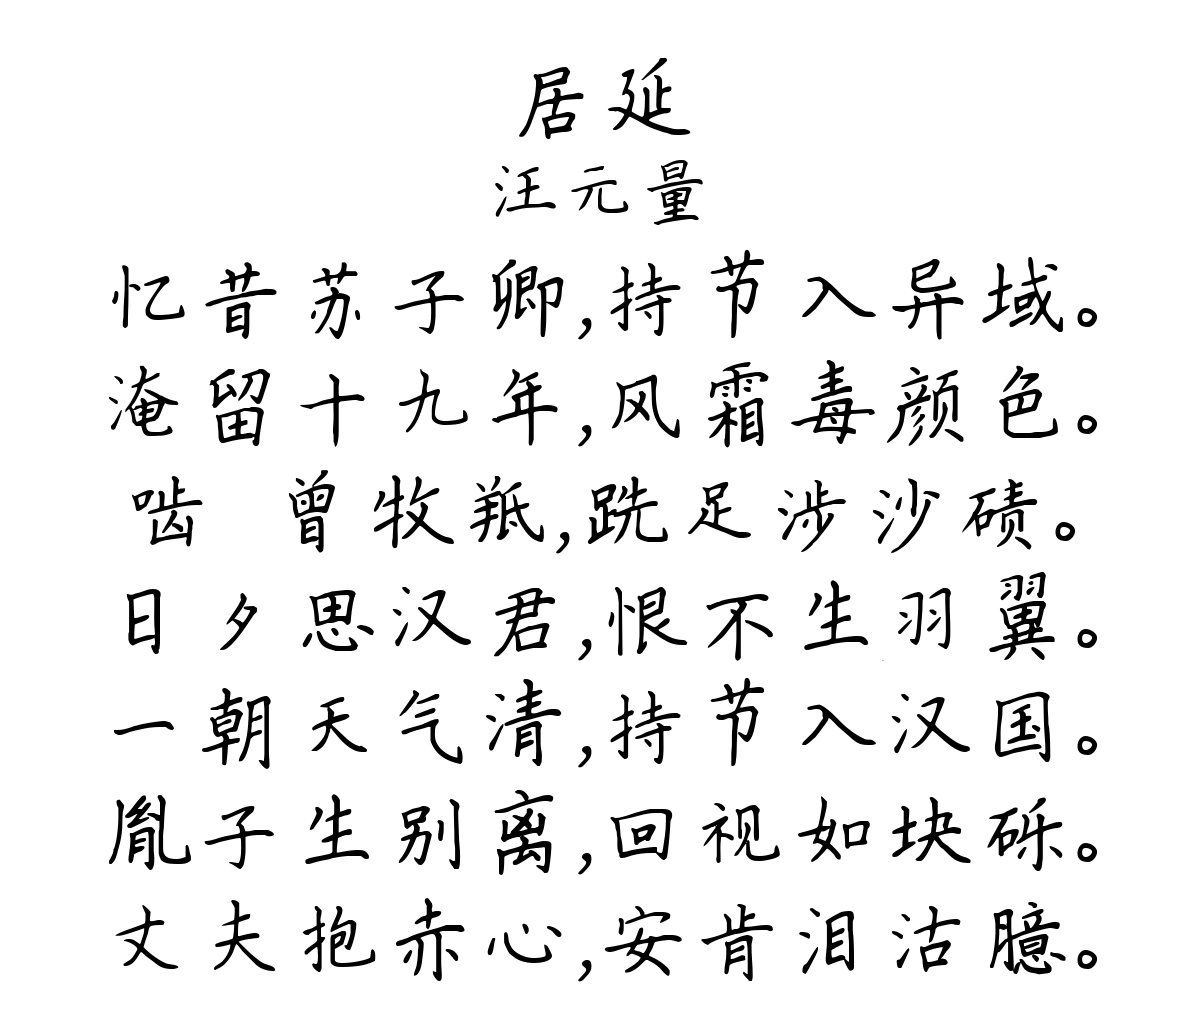 居延
汪元量
忆昔苏子卿,持节入异域。
淹留十九年,风霜毒颜色。
啮 曾牧羝,跣足涉沙碛。
日夕思汉君,恨不生羽翼。
一朝天气清,持节入汉国。
胤子生别离,回视如块砾。
丈夫抱赤心,安肯泪沾臆。